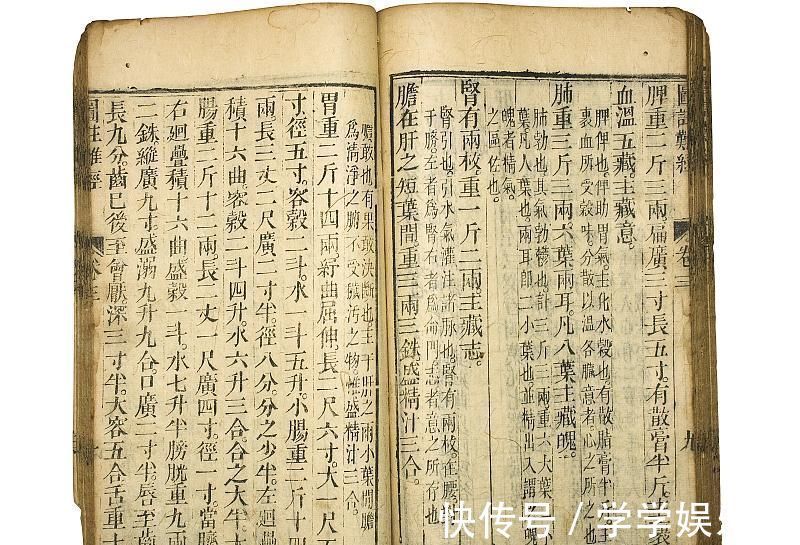 圖註難經 卷三 九
脾重二斤三兩。扁廣三寸。長五寸。有散膏半斤。主裹
血溫五藏。主藏意。
脾俾也。俾助胃氣。主化水穀也。有散膏半
裹血所受穀味。分散以溫各臟。意者心之所
肺重三斤三兩。六葉兩耳。凡八葉。主藏魄。
肺勃也。其氣勃鬱也。計三斤三兩。重六大葉小
葉。凡八葉也。兩耳即二小葉也。並精出入謂
魄者精氣。
之區佐也。
腎有兩枚。重一斤二兩。主藏志。
腎引也。引水氣灌注諸脉也。腎有兩枚。在腰
于膽。左者爲腎。右者爲命門。志者意之所存也。
膽在肝之短葉間。重三兩三銖。盛精汁三合。
膽敢也。有果敢決斷也。主于肝之兩小葉間。膽
爲清淨之腑。不受穢汚之物。惟盛精汁三合。
胃重二斤十四兩。紆曲屈伸。長二尺六寸。大一尺五
寸。徑五寸。容穀二斗。水一斗五升。小腸重二斤十四
兩。長三丈二尺。廣二寸半。徑八分分之少半。左迴疊
積十六曲。容穀二斗四升。水六升三合合之大半。大
腸重二斤十二兩。長二丈一尺。廣四寸。徑一寸。當臍
右迴疊積十六曲。盛穀一斗。水七升半。膀胱重九兩
二銖。縱廣九寸。盛溺九升九合。口廣二寸半。唇至齒
長九分。齒已後至會厭。深三寸半。大容五合。舌重十
圖註難經 卷三
快传号 / 学学娱